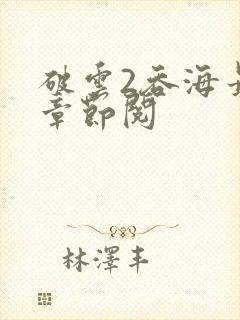 破雲2吞海最
章節閱
林澤丰